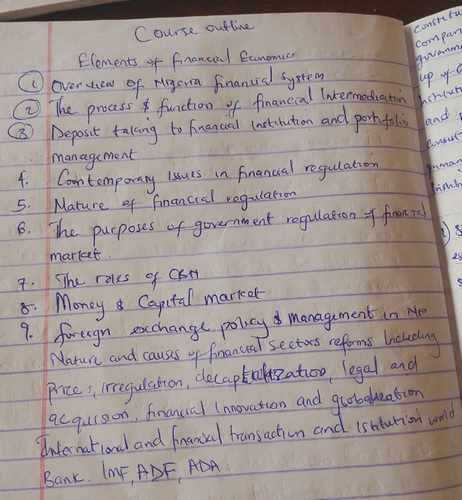 Course outline
Elements of financial Economics
1 Overview of Nigeria financial system
2 The process & function of financial Intermediation
3 Deposit taking to financial institution and portofolio
management
4. Contemporary issues in financial regulation
5. Nature of financial regulation
6. The purposes of government regulation of financial
market.
7. The roles of CBN
8. Money & Capital market
9. foreign exchange policy & management in
Nature and causes of financial sectors reforms Including
prices, irregulation, legal and
financial innovation and globalization
International and financial transaction and world
Bank. IMF, ADF, ADA